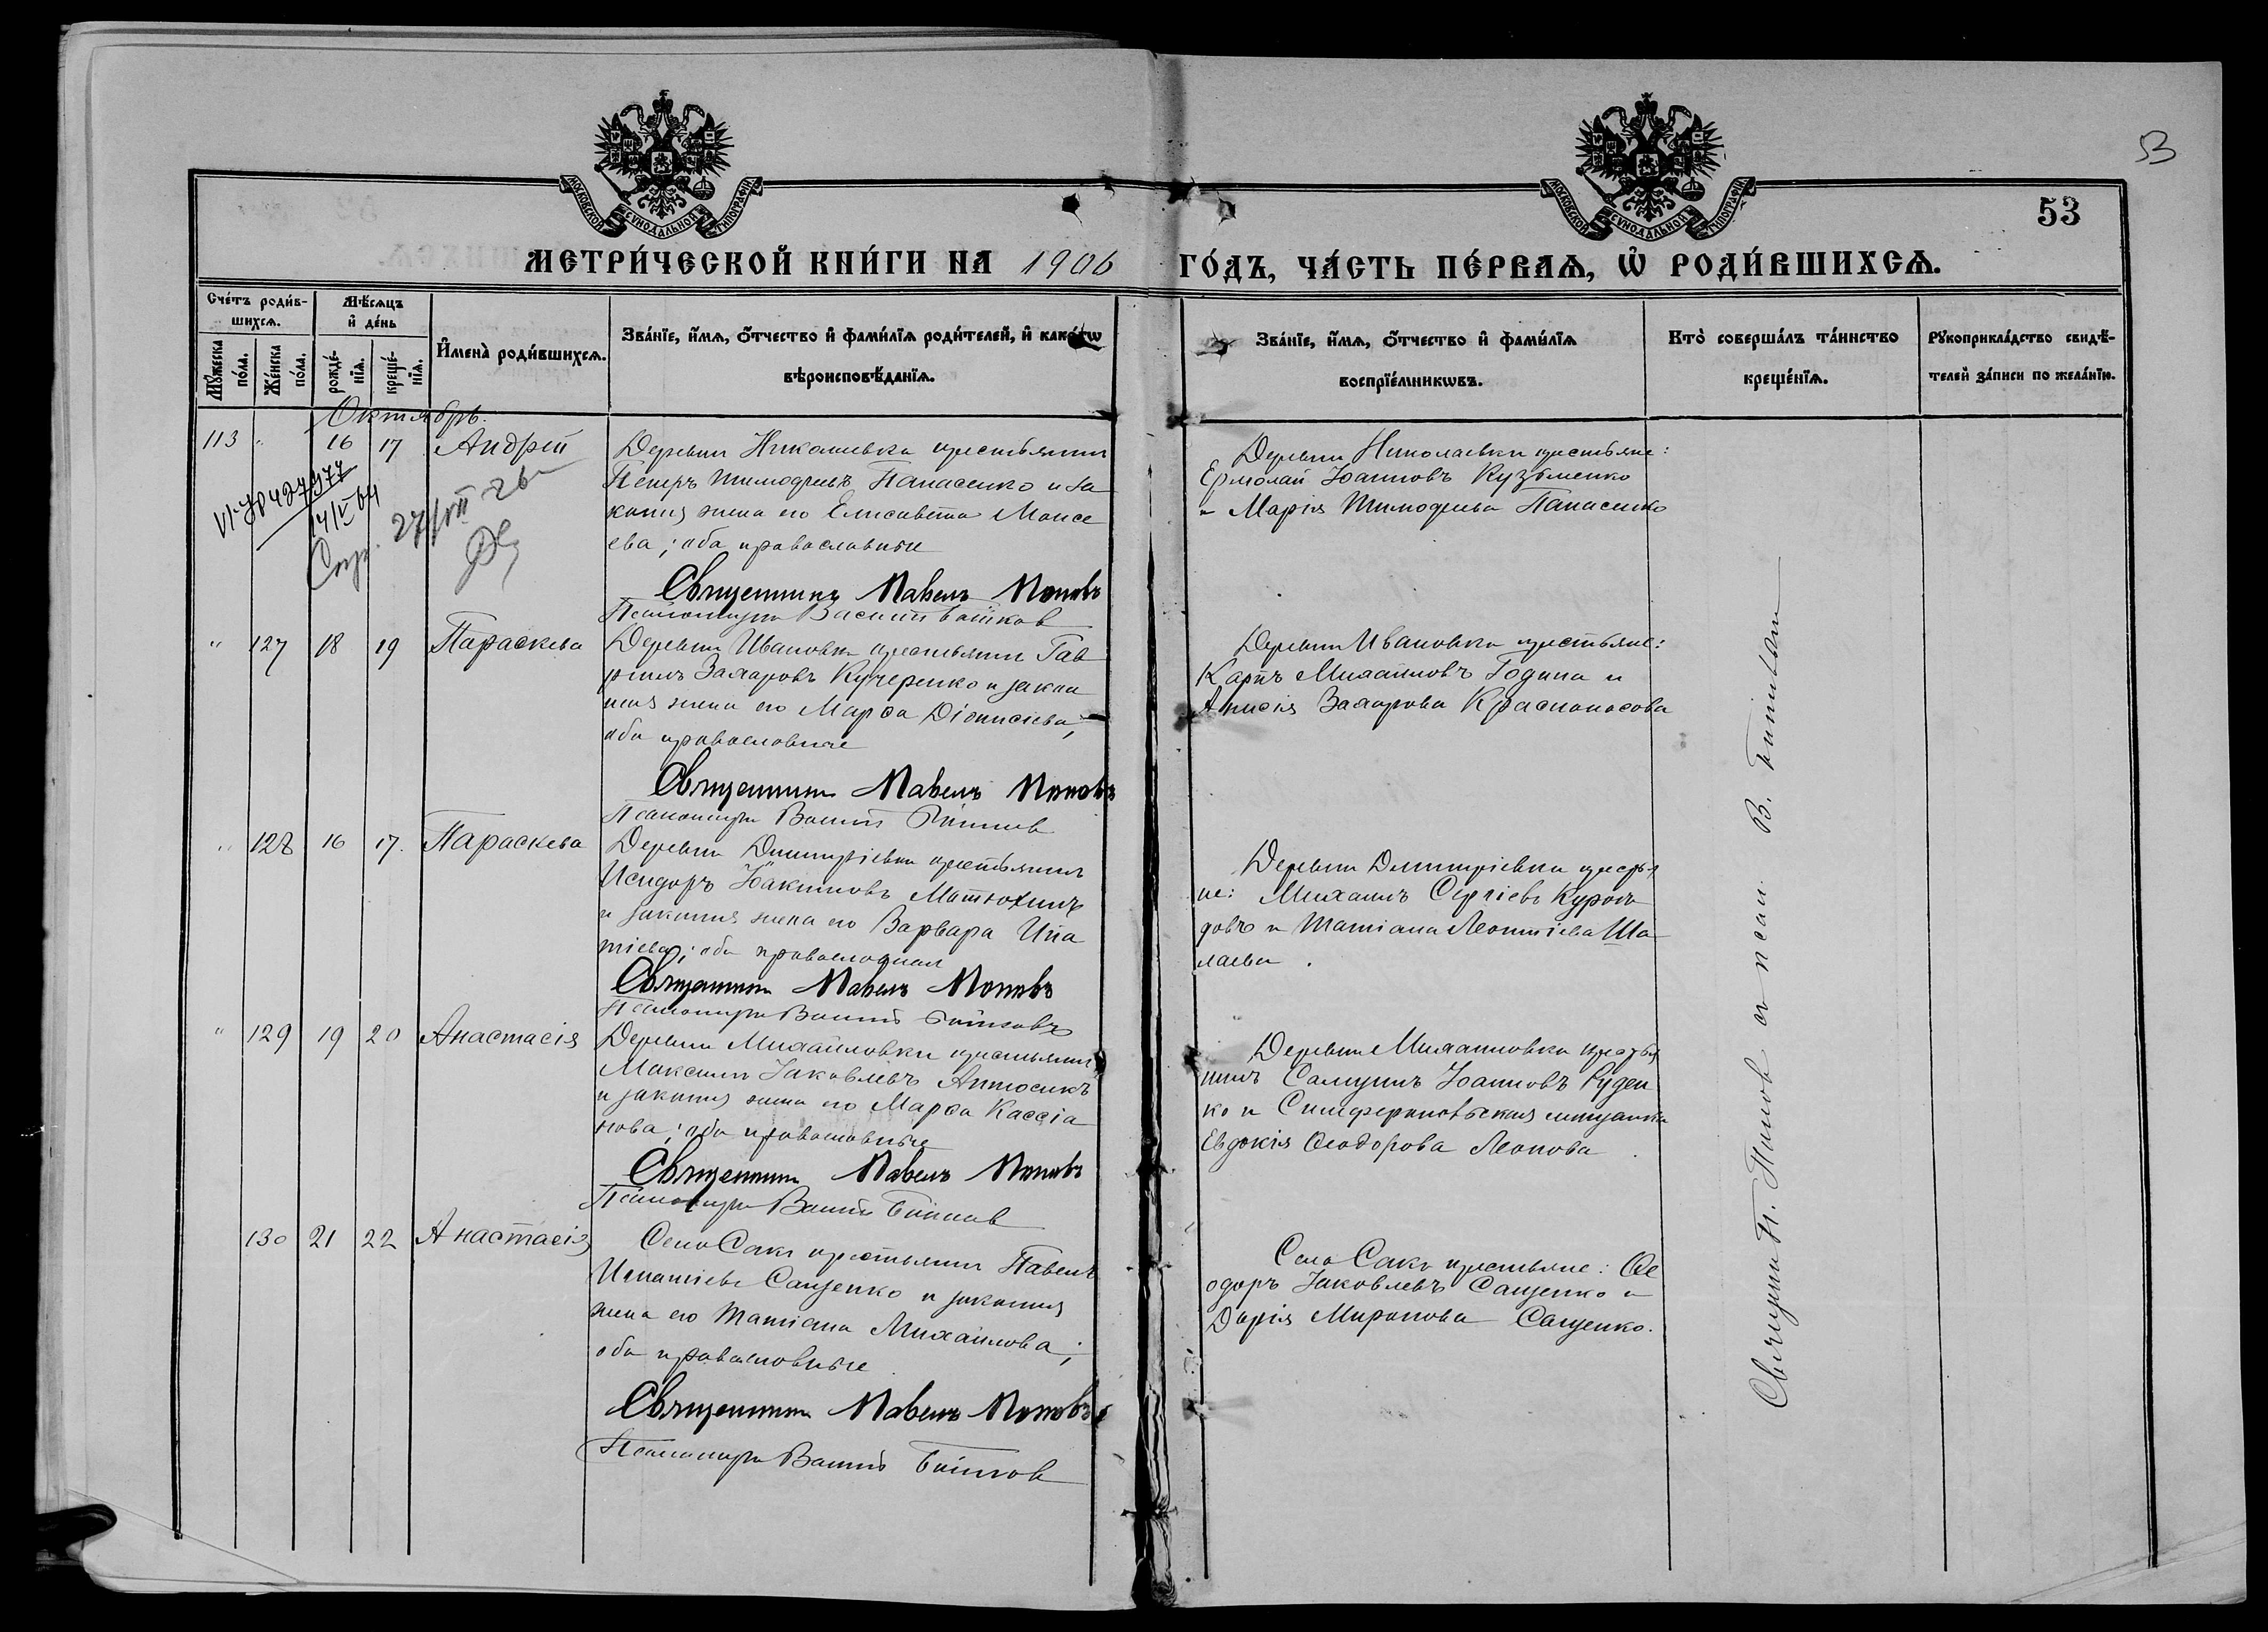 53
53
МОСКОВСКОЙ СѴНОДАЛЬНОЙ ТИПОГРАФІИ
МОСКОВСКОЙ СѴНОДАЛЬНОЙ ТИПОГРАФІИ
МЕТРИ́ЧЕСКОЙ КНИ́ГИ НА 1906 ГО́ДЪ, ЧА́СТЬ ПЕ́РВАѦ, Ѡ҆ РОДИ́ВШИХСѦ.
Сче́тъ роди́в-
шихсѧ.
Мꙋ́жеска
по́ла.
Же́нска
по́ла.
Мѣ́сѧцъ
и҆ де́нь
рожде́-
нїѧ.
креще́-
нїѧ.
И҆мена̀ роди́вшихсѧ.
Зва́нїе, и҆́мѧ, ѻ҆́тчество и҆ фами́лїѧ роди́телей, и҆ како́гѡ
вѣроисповѣ́данїѧ.
Зва́нїе, и҆́мѧ, ѻ҆́тчество и҆ фами́лїѧ
воспрїе́мникѡвъ.
Кто̀ соверша́лъ та́инство
креще́нїѧ.
Рꙋкоприкла́дство свидѣ́-
телей за́писи по жела́нїю.
Октябрь.
113 " 16 17 Андрей
Деревни Николаевки крестьянинъ
Петръ Тимофеевъ Панасенко и за
конная жена его Елисавета Моисе
ева; оба православные
Священникъ Павелъ Поповъ
Псаломщикъ Василій
Деревни Николаевки крестьяне:
Ермолай Іоанновъ Кузьменко
и Марія Тимофеева Панасенко
14/V 64
27/VII-26
" 127 18 19 Параскева
Деревни Ивановки крестьянинъ Гав
ріилъ Захаровъ Кучеренко и закон
ная жена его Марѳа Діонисіева;
оба православные
Священникъ Павелъ Поповъ
Псаломщикъ Василій
Деревни Ивановки крестьяне:
Карпъ Михайловъ Година и
Анисія Захарова Красноносова
" 128 16 17. Параскева
Деревни Димитріевки крестьянинъ
Исидоръ Іоакимовъ Матюхинъ
и законная жена его Варвара Ипа
тіева; оба православные
Священникъ Павелъ Поповъ
Псаломщикъ Василій
Деревни Димитріевки крестья
не: Михаилъ Сергіевъ Куроѣ
довъ и Татіана Леонтіева Ша
лаева.
" 129 19 20 Анастасія
Деревни Михайловки крестьянинъ
Максимъ Іаковлевъ Антосикъ
и законная жена его Марѳа Кассіа
нова; оба православные
Священникъ Павелъ Поповъ
Псаломщикъ Василій
Деревни Михайловки крестья
нинъ Самуилъ Іоанновъ Руден
ко и Симферопольская мещанка
Евдокія Ѳеодорова Леонова
130 21 22 Анастасія
Села Саки крестьянинъ Павелъ
Игнатіевъ Саценко и законная
жена его Татіана Михайлова;
оба православные
Священникъ Павелъ Поповъ
Псаломщикъ Василій
Села Саки крестьяне: Ѳе
одоръ Іаковлевъ Саценко и
Дарія Миронова Саценко.
Священникъ П. Поповъ съ псал. В.